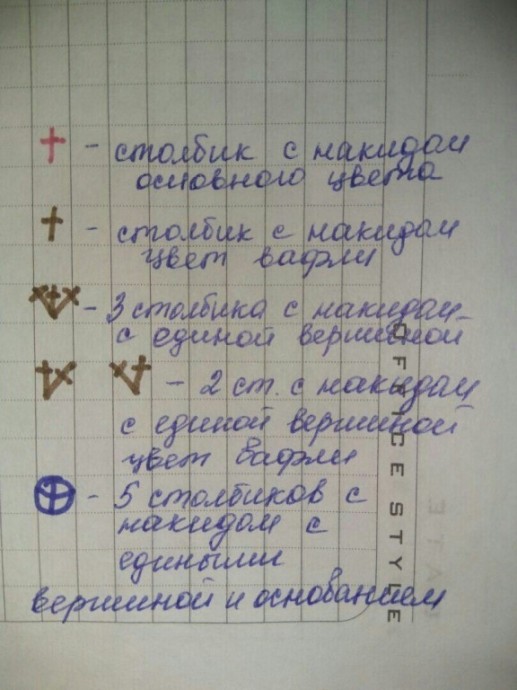 - столбик с накидом
основного цвета
- столбик с накидом
цвет вафли
- 3 столбика с накидом
с единой вершиной
- 2 ст. с накидом
с единой вершиной
цвет вафли
- 5 столбиков с
накидом с
едиными
вершиной и основанием
OFFICE STYLE